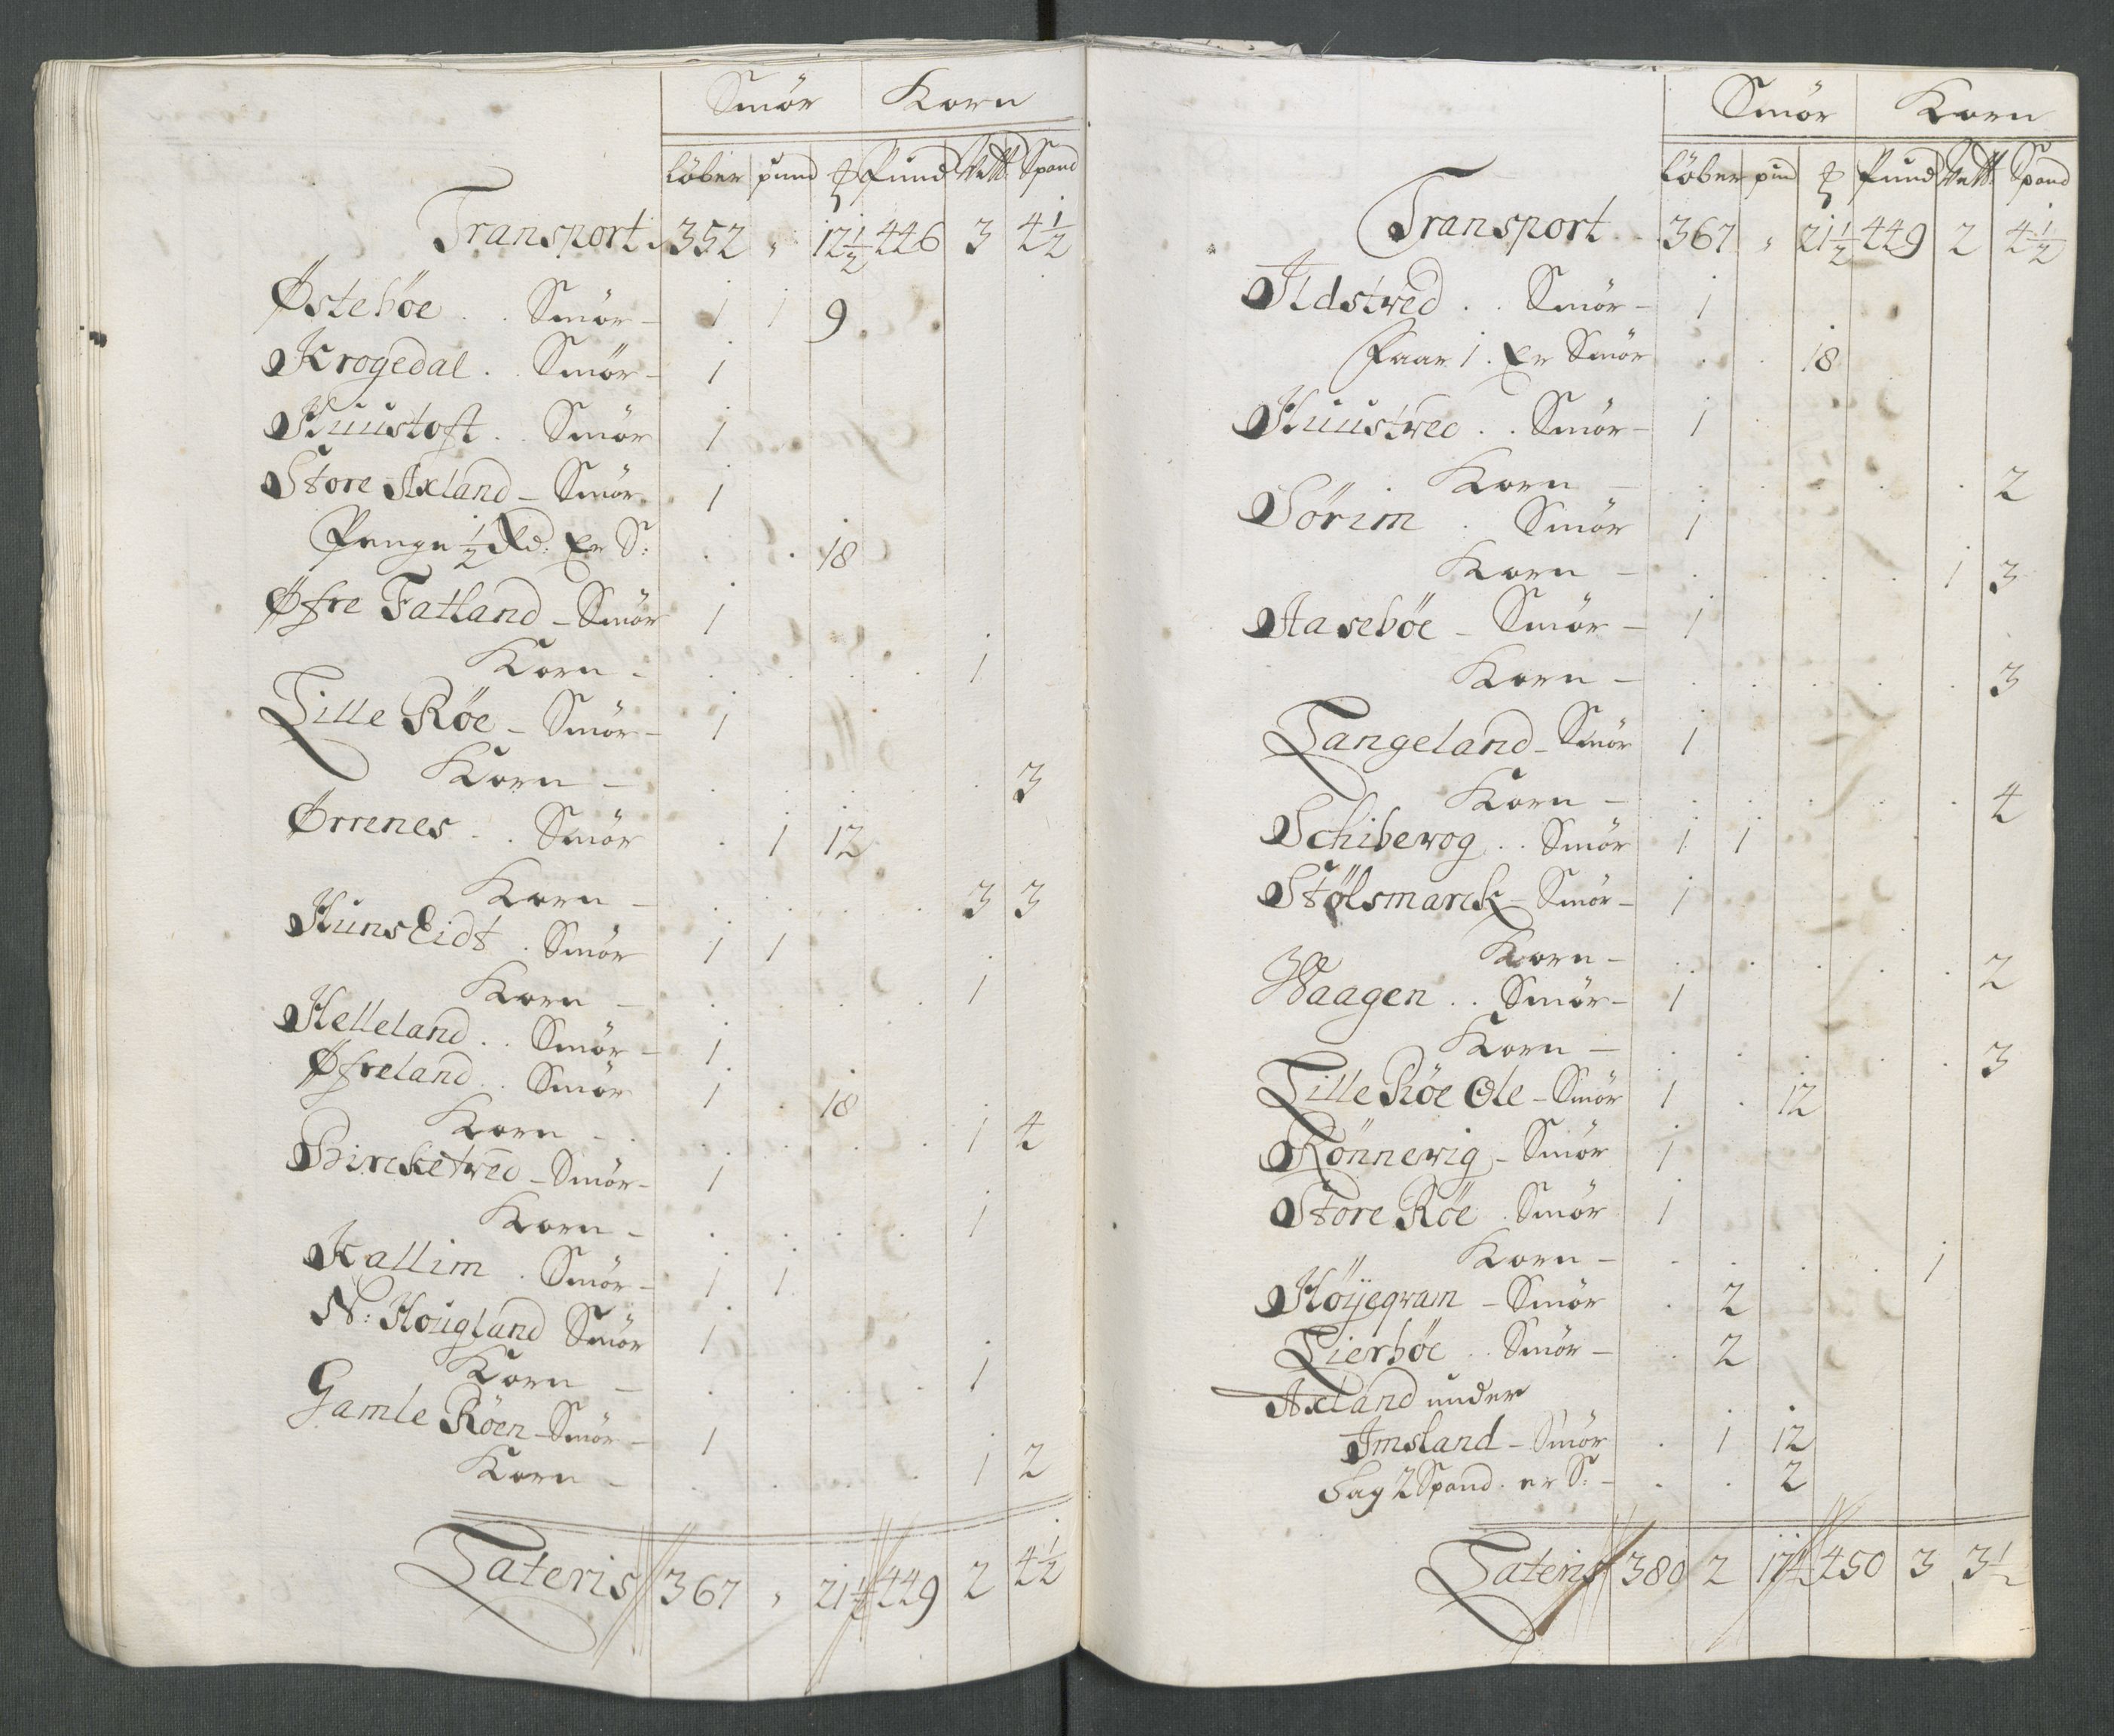 Smör Korn
Löber pund ℔ Pund Vett. Spand
Transport. 352 " 12½ 446 3 4½
Østeböe . . Smör - 1 1 9
Krogedal . . Smör - 1
Huustoft . . Smör 1
Store Axland - Smör 1
Penge ½ Rd: Er S: . . 18
Øfre Fatland - Smör 1
Korn - . . . . . 1
Lille Röe - Smör - 1
Korn - . . . . . 3
Ørrenes . . Smör . 1 12
Korn - . . . . . 3 3
HunsEidt . Smör 1 1
Korn - . . . . . 1
Helleland . . Smör - 1
Øfreland . . Smör 1 . 18
Korn - . . . . . 1 4
Bircketved - Smör - 1
Korn - . . . . . 1
Kallim . Smör - 1 1
N: Hougland Smör 1
Korn - . . . . . 1
Gamle Röen - Smör - 1
Korn - . . . . 1 2
Lateris 367 " 21½ 449 2 4½
Smör Korn
Löber pund ℔ Pund Vett. Spand
Transport . . 367 " 21½ 449 2 4½
Ildstved . . Smör - 1
Faar 1. Er Smör . . 18
Huustved . . Smör - 1
Korn - . . . . . 2
Sörim . Smör 1
Korn - . . . . 1 3
Aaseböe - Smör - 1
Korn - . . . . . 3
Langeland - Smör 1
Korn - . . . . . 4
Schibevog . . Smör 1 1
Stölsmarck - Smör - 1
Korn - . . . . . 2
Waagen . . Smör - 1
Korn - . . . . . 3
Lille Röe Ole - Smör 1 . 12
Rönnevig - Smör 1
Store Röe . Smör 1
Korn - . . . . . 1
Höyegvam - Smör . 2
Lierböe . . Smör - . 2
Axland under
Imsland - Smör . 1 12
Sag 2 Spand. er S: - . . 2
Lateris 380 2 17½ 450 3 3½